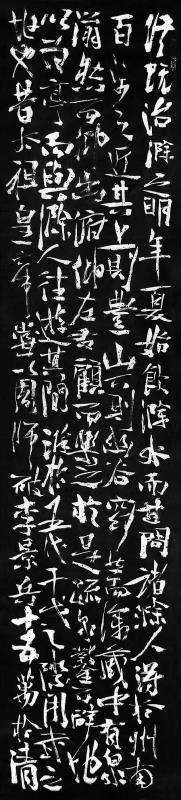 修既治滁之明年夏始飲滁水而甘問諸滁人得於州南
百步之近其上則豐山下則幽谷窈然而深藏中有泉
滃然而仰出俯仰左右顧而樂之於是疏泉鑿石辟地
以為亭而與滁人往遊其間滁於五代干戈之際用武之
地也昔太祖皇帝嘗以周師破李景兵十五萬於清